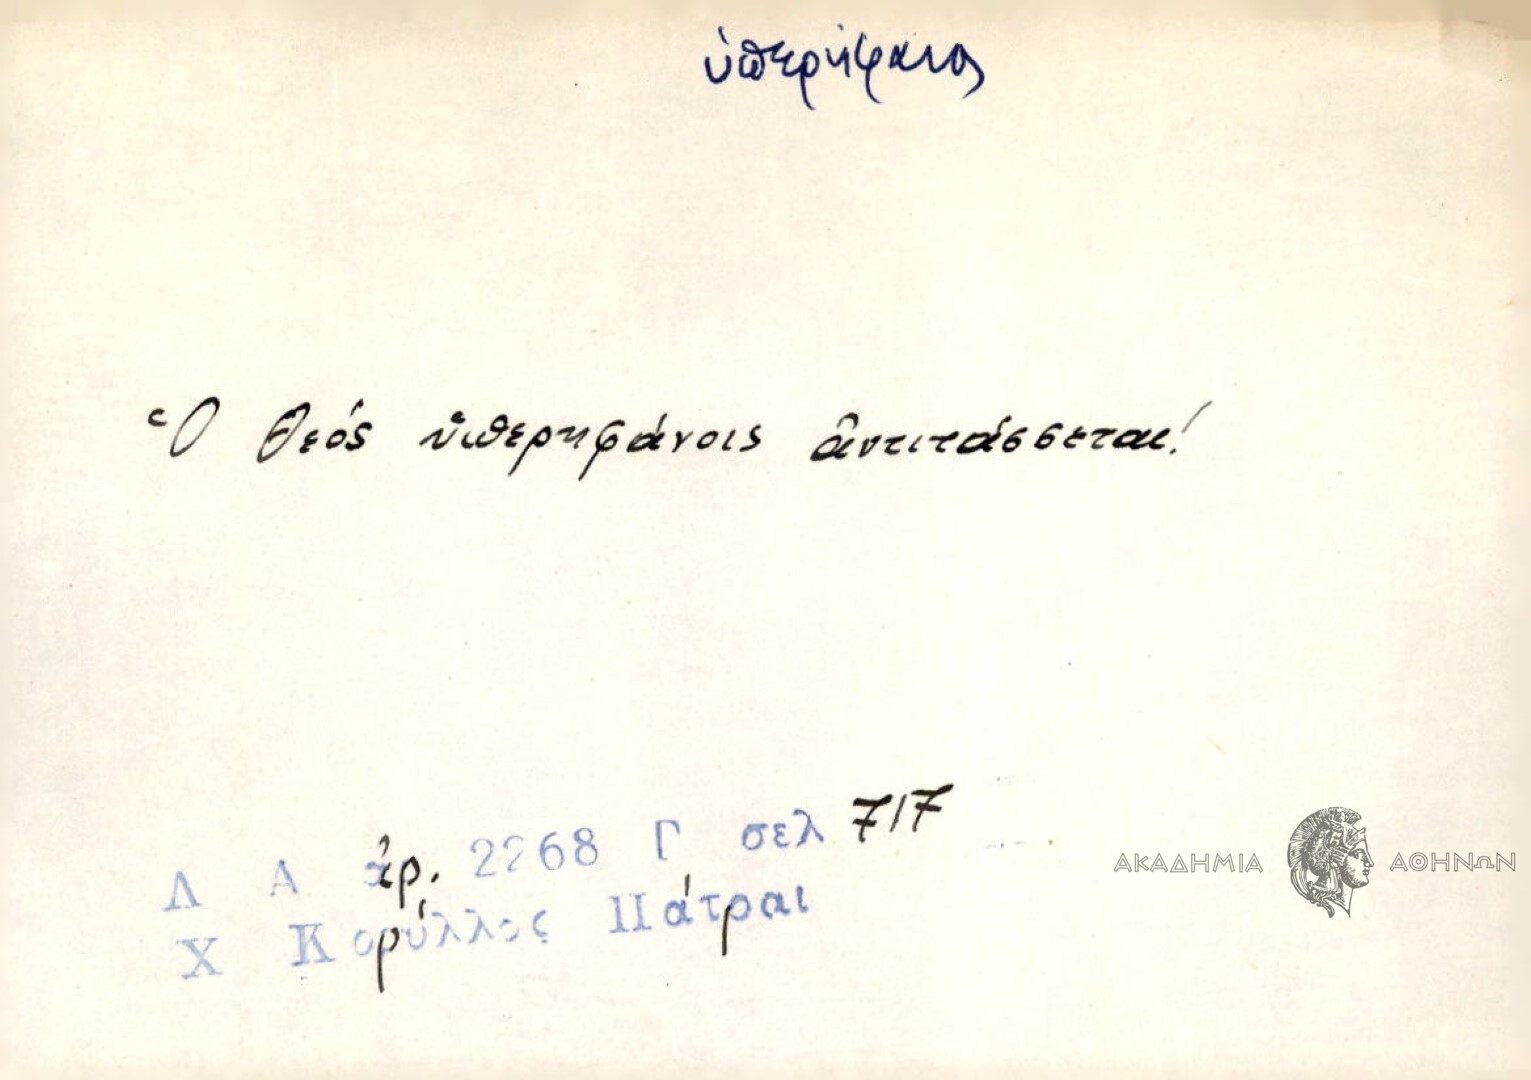 ὑπερήφανος
Ὁ Θεός ὑπερηφάνοις ἀντιτάσσεται!
Λ Α ἀρ. 2268 Γ σελ 717
Χ Κορύλλος Πάτραι
ΑΚΑΔΗΜΙΑ ΑΘΗΝΩΝ